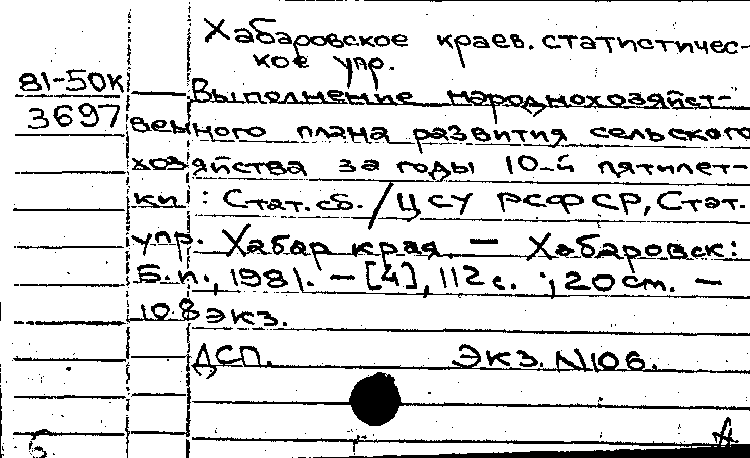 Хабаровское краев. статистичес-
кое упр.
81-50К
Выполнение народнохозяйст-
3697
венного плана развития сельского
хозяйства за годы 10-й пятилет-
ки : Стат. сб. / ЦСУ РСФСР, Стат.
упр. Хабар края. — Хабаровск:
Б.и., 1981. — [4], 112 с. ; 20 см. —
108 экз.
ДСП. Экз. N106.
Б А